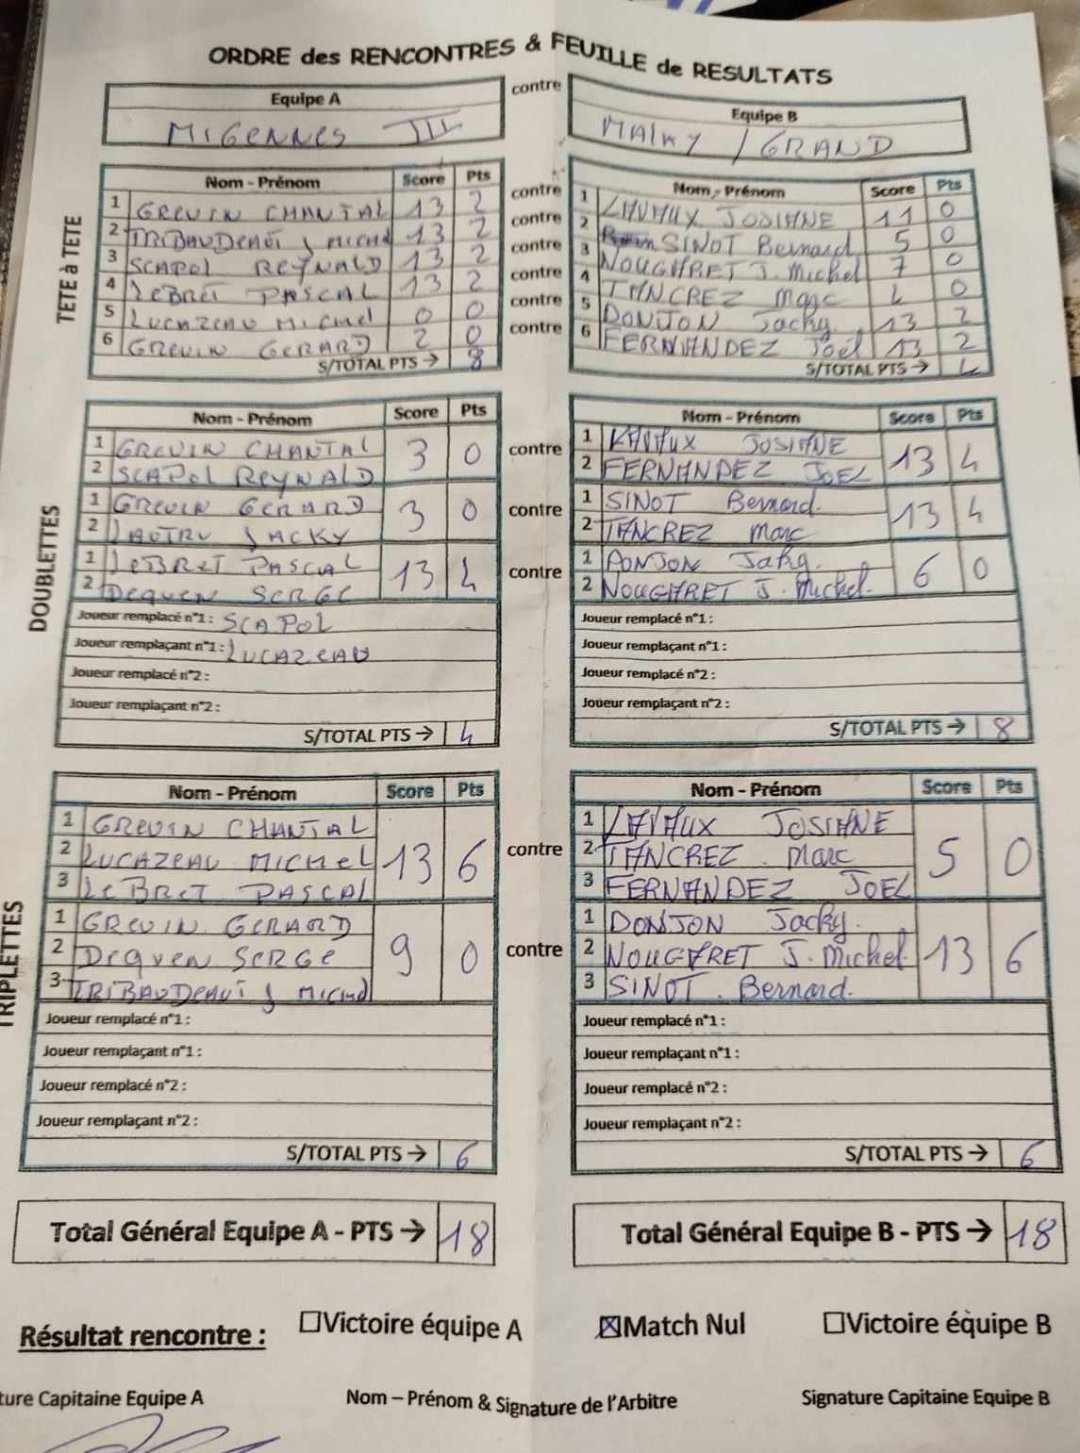 ORDRE des RENCONTRES & FEUILLE de RESULTATS
Equipe A contre Equipe B
MIGENNES III MALAY / GRAND
TETE à TETE
Nom - Prénom Score Pts Nom - Prénom Score Pts
1 GREVIN CHANTAL 13 2 contre 1 LAVAUX JOSIANE 11 0
2 TRIBAUDEAUT J MICHEL 13 2 contre 2 SINOT Bernard 5 0
3 SCAPOL REYNALD 13 2 contre 3 NOUGHRET J. Michel 7 0
4 LEBRET PASCAL 13 2 contre 4 TANCREZ Marc 4 0
5 LUCAZEAU MICHEL 0 0 contre 5 DONJON Jacky 13 2
6 GREVIN GERARD 2 0 contre 6 FERNANDEZ Joël 13 2
S/TOTAL PTS → 8 S/TOTAL PTS → 4
DOUBLETTES
Nom - Prénom Score Pts Nom - Prénom Score Pts
1 GREVIN CHANTAL 3 0 contre 1 LAVAUX JOSIANE 13 4
2 SCAPOL REYNALD 2 FERNANDEZ JOEL
1 GREVIN GERARD 3 0 contre 1 SINOT Bernard. 13 4
2 LAUTRU JACKY 2 TANCREZ Marc
1 LEBRET PASCAL 13 4 contre 1 DONJON Jacky. 6 0
2 DEQVEN SERGE 2 NOUGHRET J. Michel.
Joueur remplacé n°1 : SCAPOL Joueur remplacé n°1 :
Joueur remplaçant n°1 : LUCAZEAU Joueur remplaçant n°1 :
Joueur remplacé n°2 : Joueur remplacé n°2 :
Joueur remplaçant n°2 : Joueur remplaçant n°2 :
S/TOTAL PTS → 4 S/TOTAL PTS → 8
TRIPLETTES
Nom - Prénom Score Pts Nom - Prénom Score Pts
1 GREVIN CHANTAL 1 LAVAUX JOSIANE
2 LUCAZEAU MICHEL 13 6 contre 2 TANCREZ . Marc 5 0
3 LEBRET PASCAL 3 FERNANDEZ JOEL
1 GREVIN GERARD 1 DONJON Jacky.
2 DEQVEN SERGE 9 0 contre 2 NOUGHRET J. Michel. 13 6
3 TRIBAUDEAUT J MICHEL 3 SINOT . Bernard.
Joueur remplacé n°1 : Joueur remplacé n°1 :
Joueur remplaçant n°1 : Joueur remplaçant n°1 :
Joueur remplacé n°2 : Joueur remplacé n°2 :
Joueur remplaçant n°2 : Joueur remplaçant n°2 :
S/TOTAL PTS → 6 S/TOTAL PTS → 6
Total Général Equipe A - PTS → 18 Total Général Equipe B - PTS → 18
Résultat rencontre : ☐Victoire équipe A ☒Match Nul ☐Victoire équipe B
ture Capitaine Equipe A Nom – Prénom & Signature de l'Arbitre Signature Capitaine Equipe B